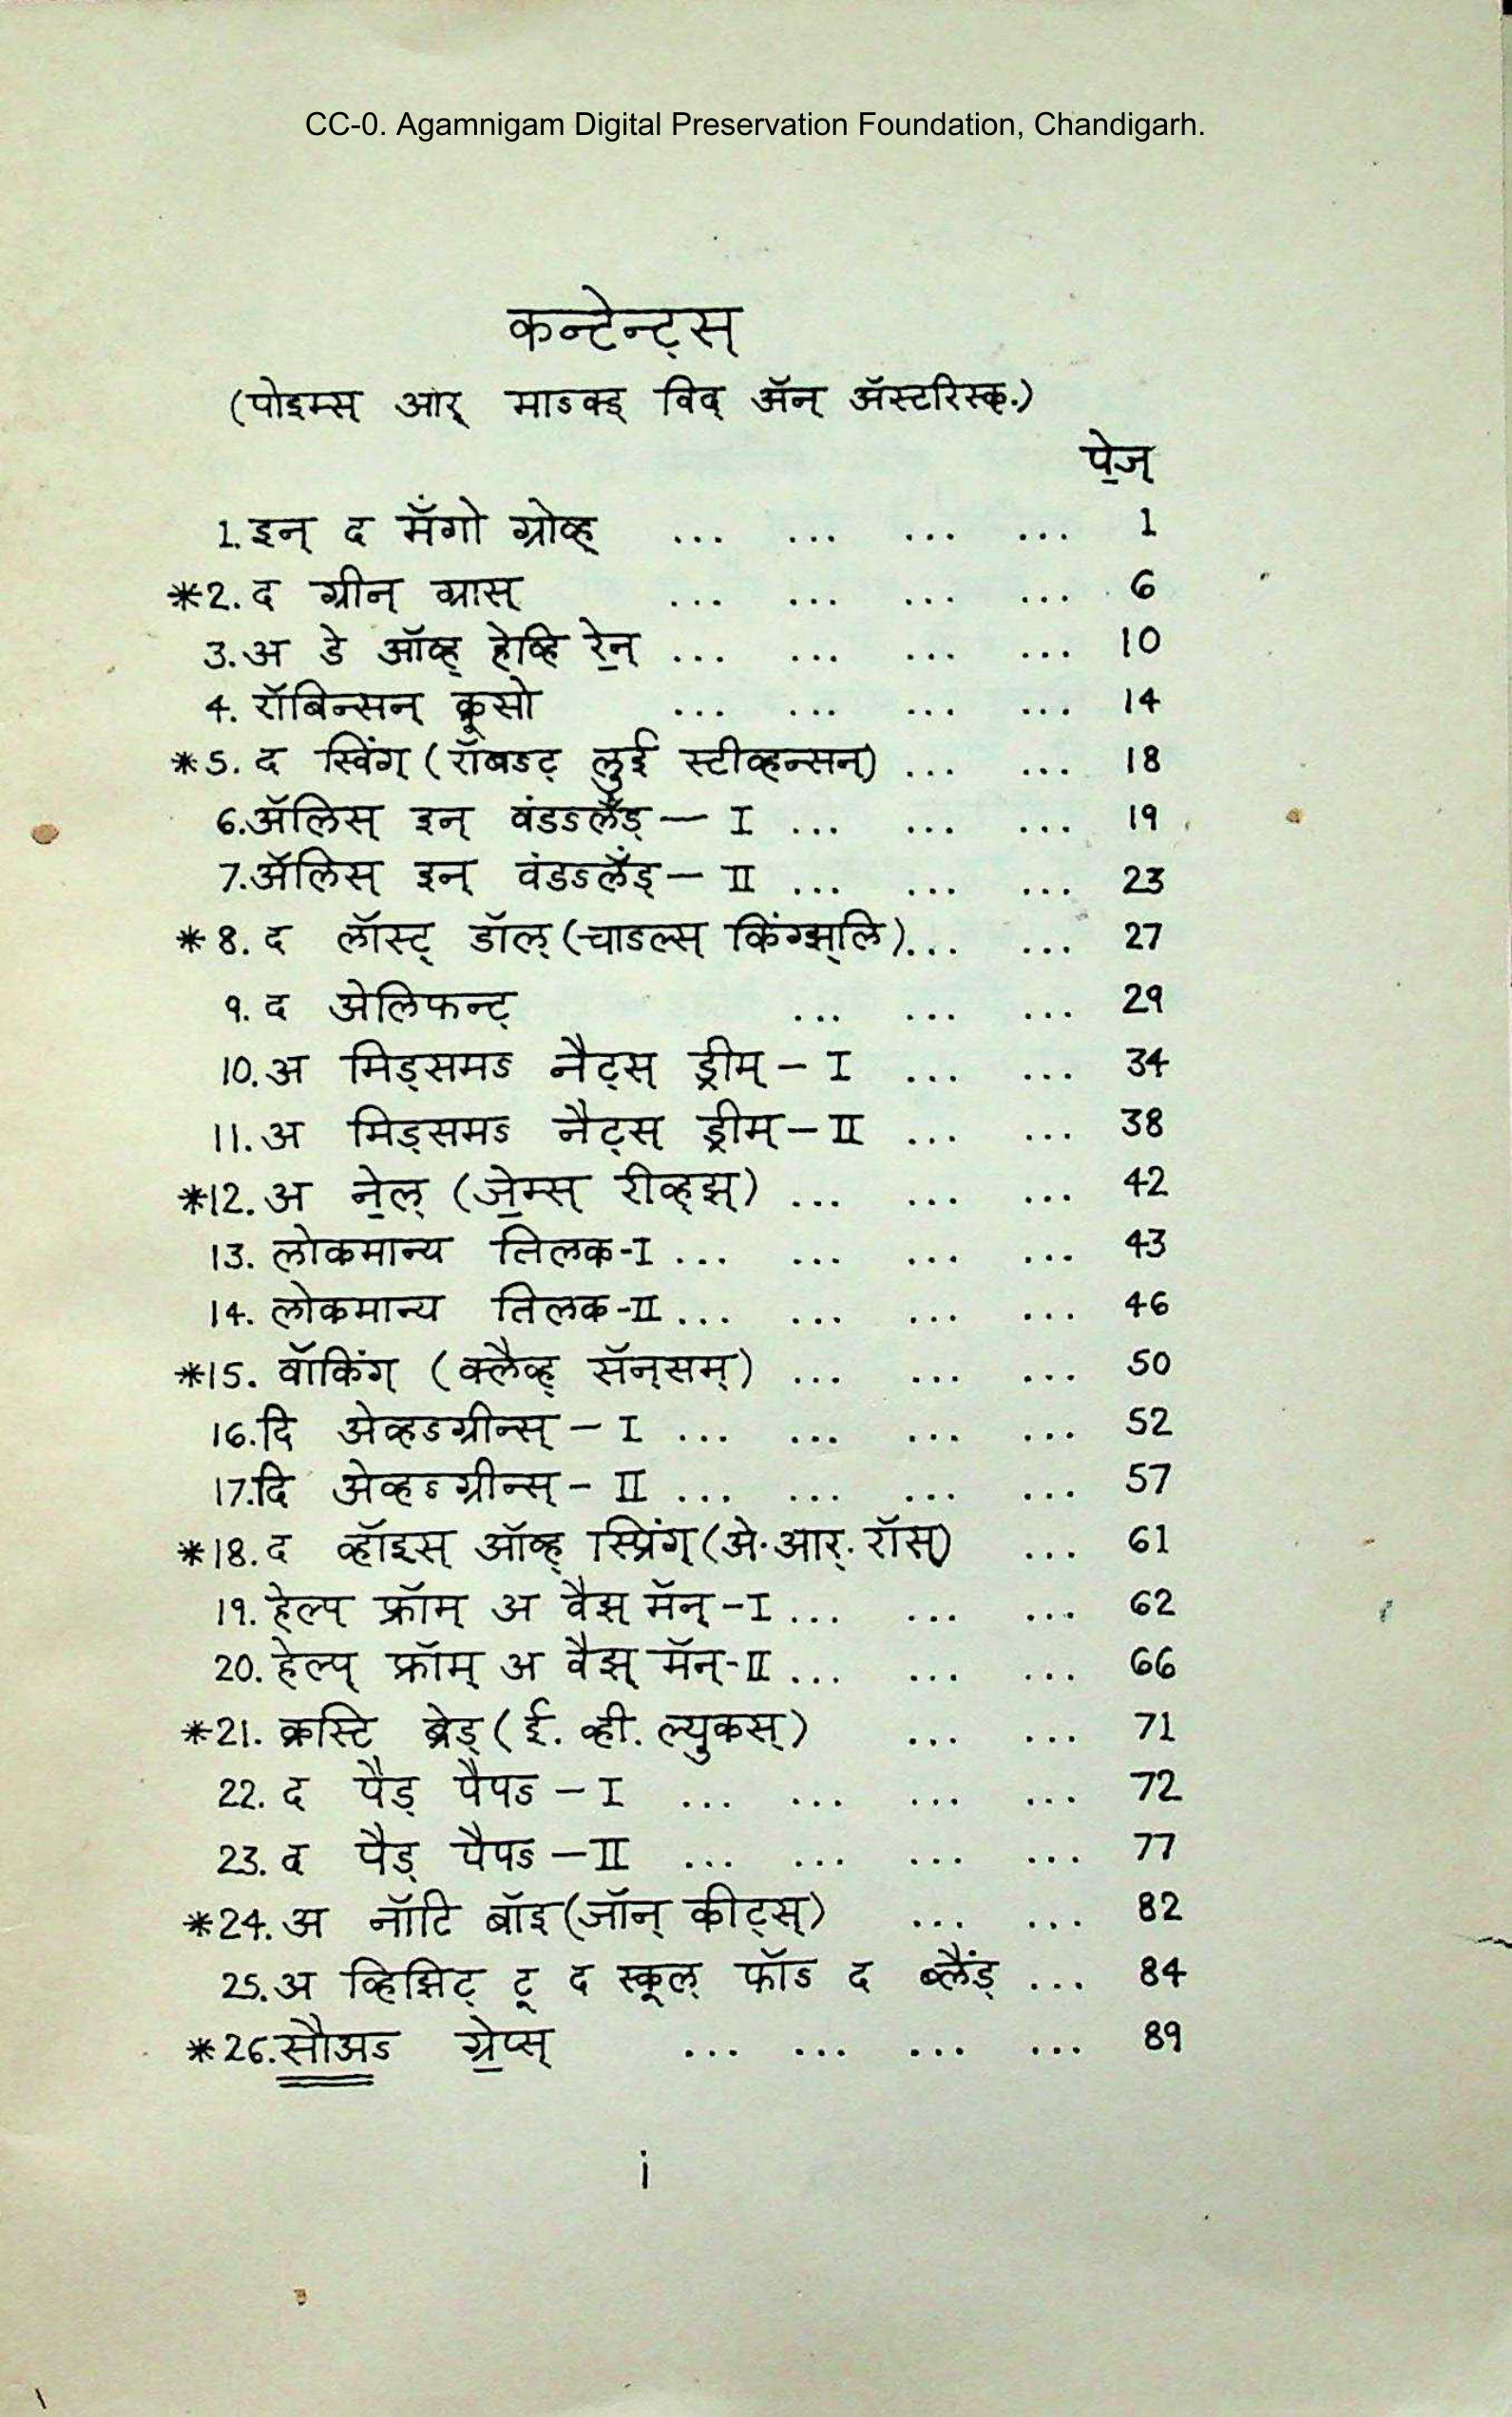 CC-0. Agamnigam Digital Preservation Foundation, Chandigarh.
कन्टेन्ट्स्
(पोइम्स् आर् माऽक्ड् विद् अ‍ॅन् अ‍ॅस्टरिस्क्.)
पे॒ज्
1. इन् द मँगो ग्रोव्ह् ... ... ... ... 1
*2. द ग्रीन् ग्रास् ... ... ... ... 6
3. अ डे ऑव्ह् हेव्हि रे॒न् ... ... ... ... 10
4. रॉबिन्सन् क्रूसो ... ... ... ... 14
*5. द स्विंग् (रॉबऽट् लुई स्टीव्हन्सन्) ... ... 18
6. अ‍ॅलिस् इन् वंडऽलँड् — I ... ... ... 19
7. अ‍ॅलिस् इन् वंडऽलँड् — II ... ... ... 23
*8. द लॉस्ट् डॉल् (चाऽल्स् किंग्झ्लि) ... ... 27
9. द अेलिफन्ट् ... ... ... 29
10. अ मिड्समऽ नैट्स् ड्रीम् — I ... ... 34
11. अ मिड्समऽ नैट्स् ड्रीम् — II ... ... 38
*12. अ ने॒ल् (जे॒म्स् रीव्ह्झ्) ... ... ... 42
13. लोकमान्य तिलक-I ... ... ... ... 43
14. लोकमान्य तिलक-II ... ... ... ... 46
*15. वॉकिंग् (क्लैव्ह् सॅन्सम्) ... ... ... 50
16. दि अेव्हऽग्रीन्स् — I ... ... ... ... 52
17. दि अेव्हऽग्रीन्स् — II ... ... ... ... 57
*18. द व्हॉइस् ऑव्ह् स्प्रिंग् (अे. आर्. रॉस्) ... 61
19. हेल्प् फ्रॉम् अ वैझ् मॅन् — I ... ... ... 62
20. हेल्प् फ्रॉम् अ वैझ् मॅन्-II ... ... ... 66
*21. क्रस्टि ब्रेड् (ई. व्ही. ल्युकस्) ... ... 71
22. द पैड् पैपऽ — I ... ... ... ... 72
23. द पैड् पैपऽ — II ... ... ... ... 77
*24. अ नॉटि बॉइ (जॉन् कीट्स्) ... ... 82
25. अ व्हिझिट् टू द स्कूल् फॉऽ द ब्लैंड् ... 84
*26. सौअऽ ग्रे॒प्स् ... ... ... ... 89
i